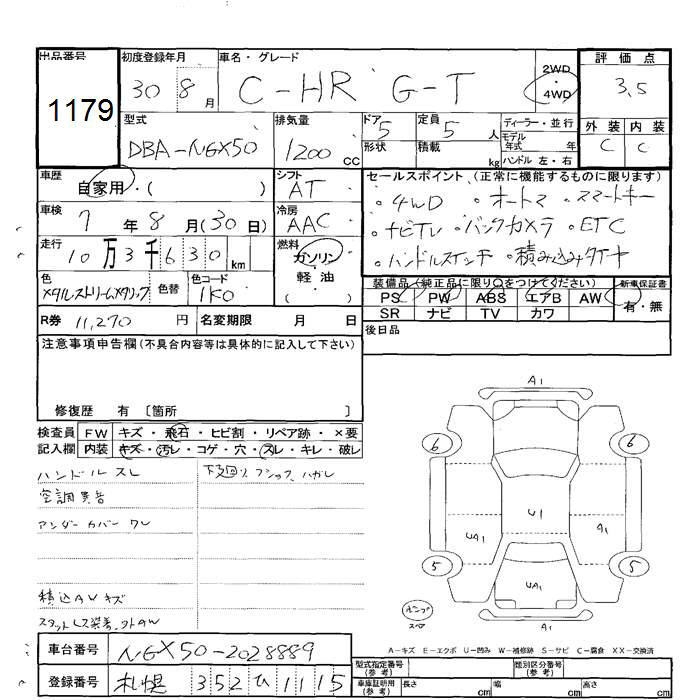 出品番号
1179
初度登録年月
30 8 月
車名・グレード
C-HR G-T
2WD
4WD
評価点
3.5
外装 内装
C C
型式
DBA-NGX50
排気量
1200 CC
ドア 5
形状
定員 5 人
積載 kg
ディーラー・並行
モデル年式 年
ハンドル 左・右
車歴
自家用・( )
シフト
AT
セールスポイント (正常に機能するものに限ります)
。4WD 。オートマ 。スマートキー
。ナビTV 。バックカメラ 。ETC
。ハンドルスイッチ 。積み込みタイヤ
車検
7 年 8 月(30日)
冷房
AAC
走行
10万3千630 km
燃料
ガソリン
軽・油
色
メタルストリームメタリック
色替
色コード
1K0
装備品(純正品に限り○をつけてください)
新車保証書
PS PW ABS エアB AW
有・無
SR ナビ TV カワ
R券 11,270 円
名変期限 月 日
後日品
注意事項申告欄(不具合内容等は具体的に記入して下さい)
修復歴 有 〔箇所 〕
検査員
記入欄
FW キズ・飛石・ヒビ割・リペア跡・×要
内装 キズ・汚レ・コゲ・穴・スレ・キレ・破レ
ハンドルスレ
空調異音
アンダーカバーワレ
積込AWキズ
スタットレス装着、外AW
A1
6 6
UA1 U1 A1
5 5
UA1
A1
スペア
A-キズ E-エクボ U-凹み W-補修跡 S-サビ C-腐食 XX-交換済
車台番号
NGX50-2028889
登録番号
札幌 352 ひ 1115
型式指定番号
(参考)
類別区分番号
(参考)
車庫証明用
(参考)
長さ cm
幅 cm
高さ cm